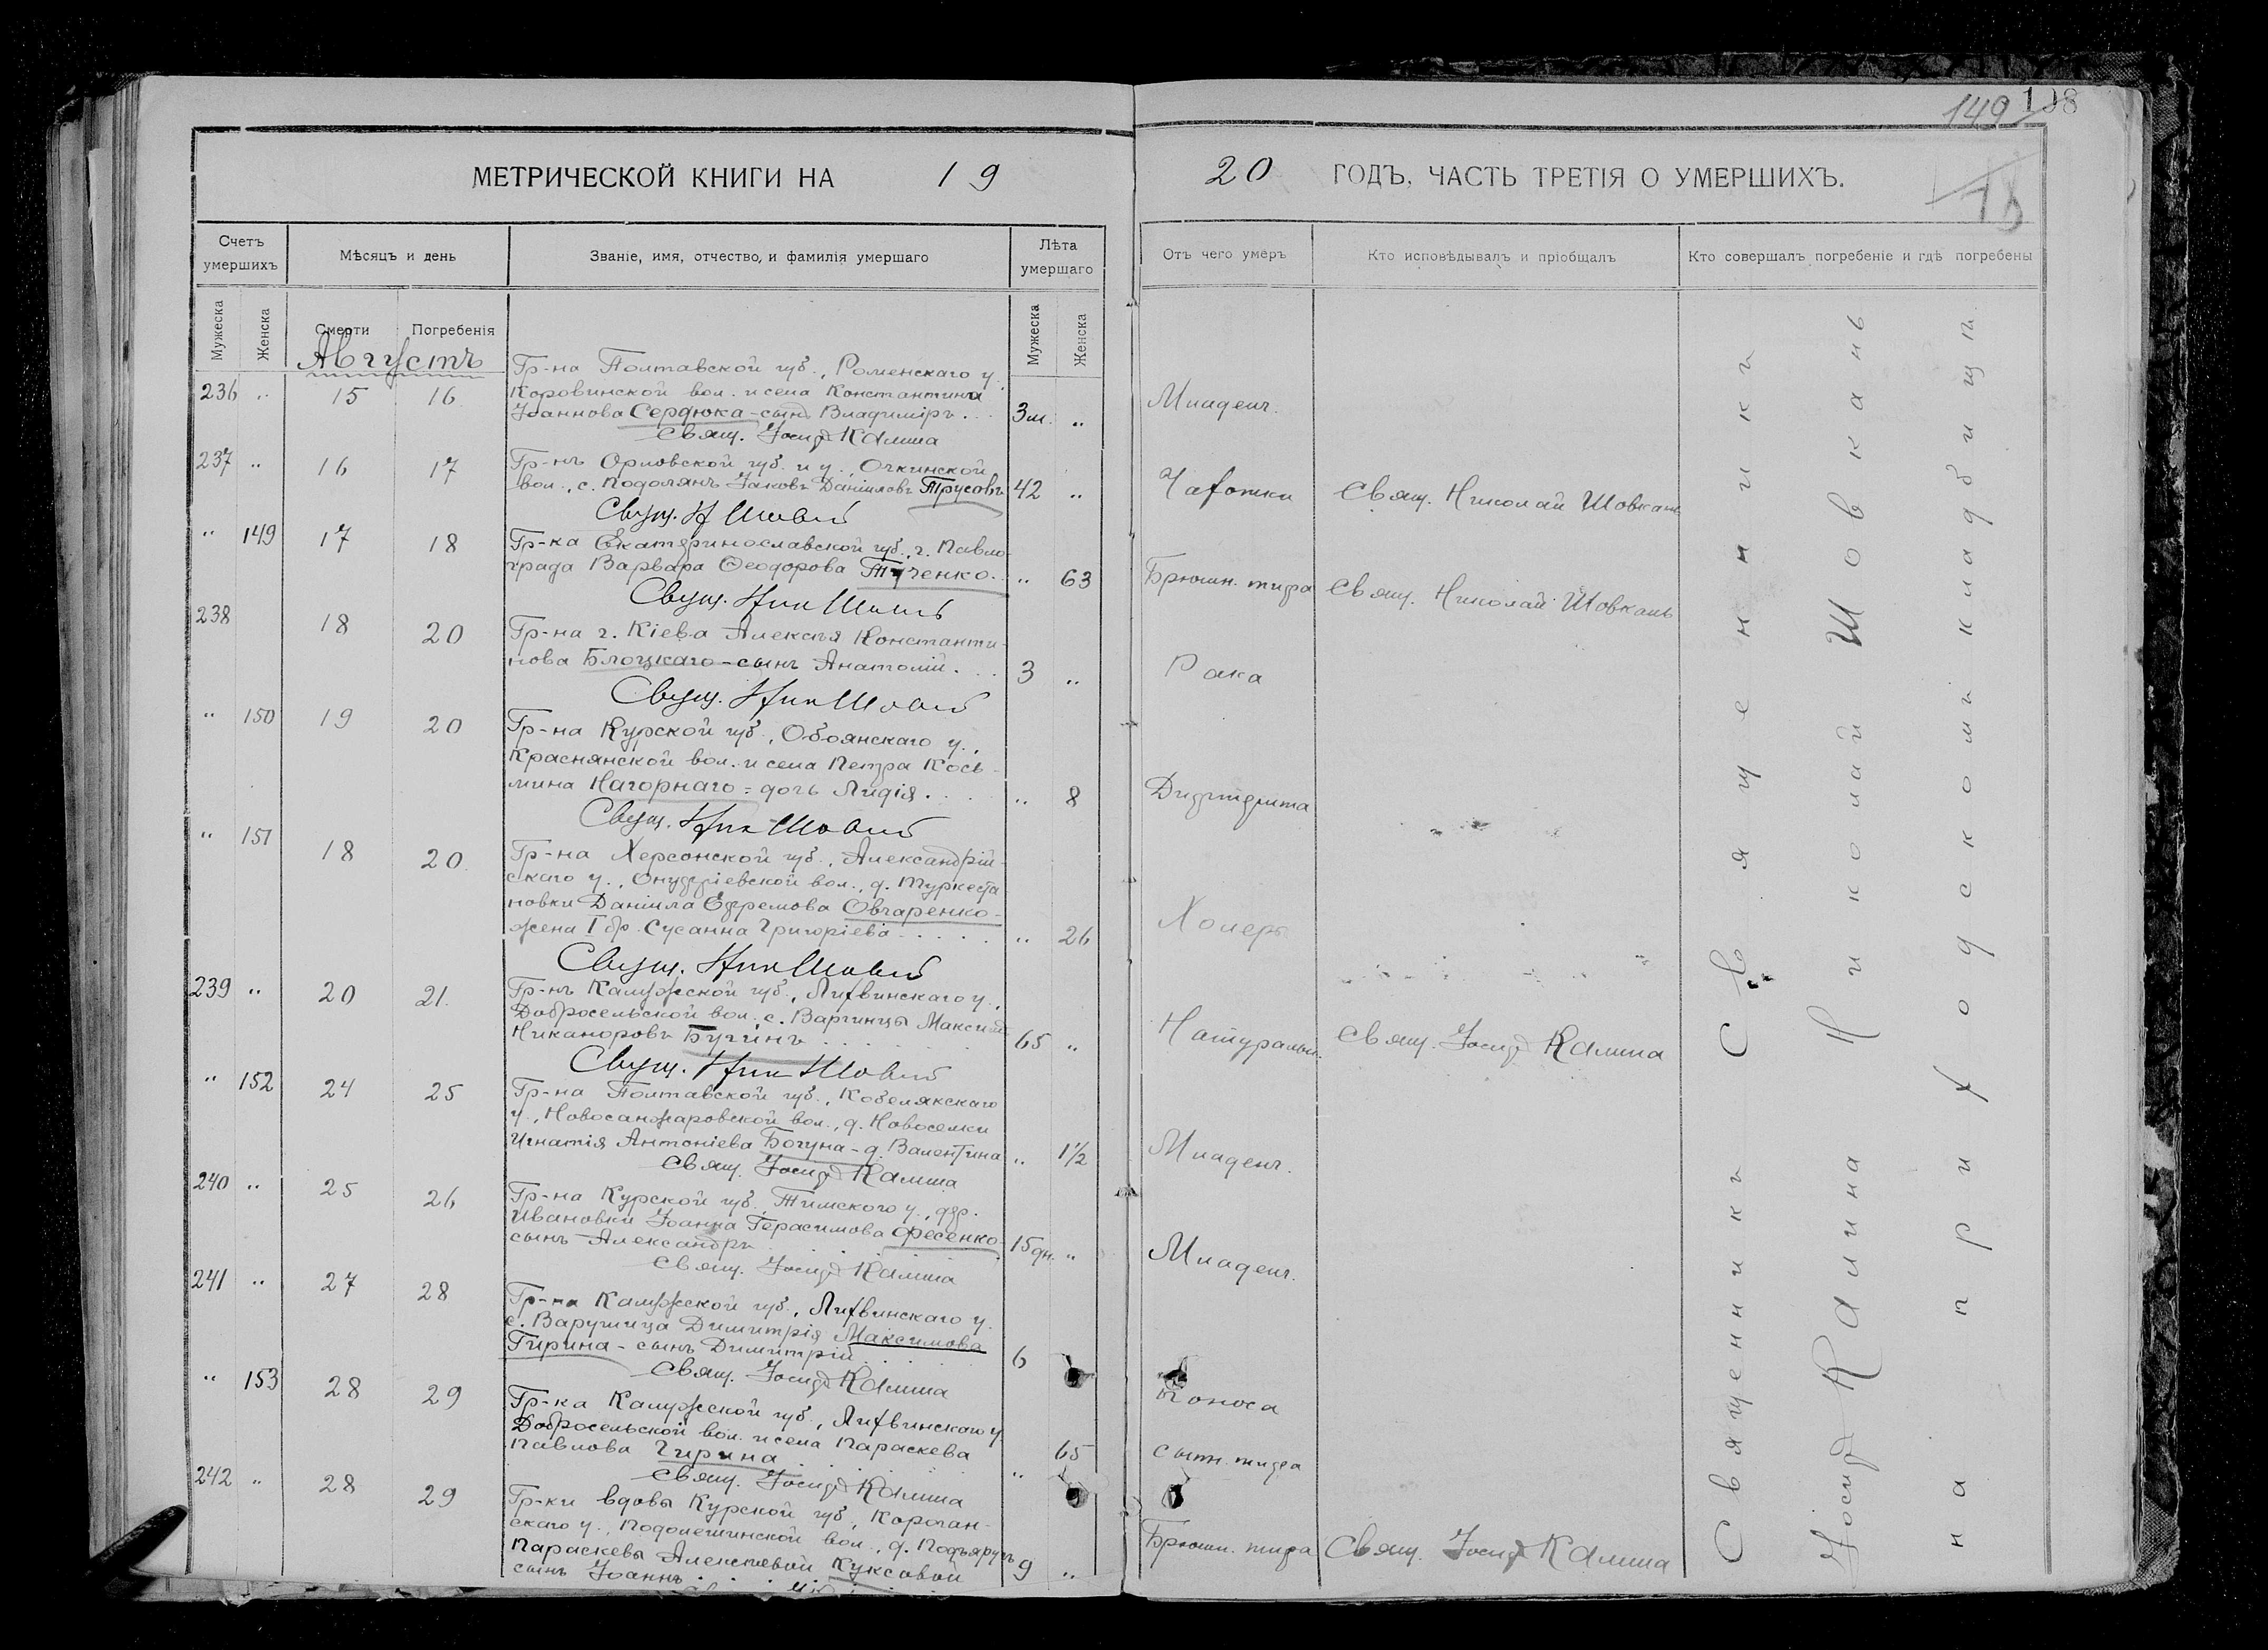 149 108
МЕТРИЧЕСКОЙ КНИГИ НА 19 20 ГОДЪ, ЧАСТЬ ТРЕТІЯ О УМЕРШИХЪ.
Счетъ умершихъ
Мѣсяцъ и день
Званіе, имя, отчество, и фамилія умершаго
Лѣта умершаго
Отъ чего умеръ
Кто исповѣдывалъ и пріобщалъ
Кто совершалъ погребеніе и гдѣ погребены
Мужеска
Женска
Смерти
Погребенія
Мужеска
Женска
Августъ
Гр-на Полтавской губ., Роменскаго у.
236 „ 15 16 Коровинской вол. и села Константина
Іоаннова Сердюка - сынъ Владиміръ . . . 3м. „ Младенч.
Свящ. Іосиф Калина
237 „ 16 17 Гр-нъ Орловской губ. и у., Очкинской
вол., с. Подолянъ Іаковъ Даніиловъ Трусовъ 42 „ Чахотки Свящ. Николай Шовкань
Свящ. Н Шовкань
„ 149 17 18 Гр-ка Екатеринославской губ., г. Павло-
града Варвара Ѳеодорова Ткченко. „ 63 Брюшн. тифа Свящ. Николай Шовкань
Свящ. Ник Шовкань
238 18 20 Гр-на г. Кіева Алексія Константи-
нова Блоцкаго - сынъ Анатолій. . . 3 „ Рака
Свящ. Ник Шовкань
„ 150 19 20 Гр-на Курской губ., Обоянскаго у.,
Краснянской вол. и села Петра Кось-
мина Нагорнаго = дочь Лидія. . . . „ 8 Дифтерита
Свящ. Ник Шовкань
„ 151 18 20 Гр-на Херсонской губ., Александрій-
скаго у., Онуфріевской вол., д. Туркеста-
новки Даніила Ефремова Овчаренко -
жена I бр. Сусанна Григоріева . . . . . „ 26 Холеры
Свящ. Ник Шовкань
239 „ 20 21 Гр-нъ Калужской губ., Лихвинскаго у.,
Добросельской вол., с. Варгинцы Максим
Никаноровъ Бугинъ . . . 65 „ Натуральн. Свящ. Іосиф Калина
Свящ. Ник Шовкань
„ 152 24 25 Гр-на Полтавской губ., Кобелякскаго
у., Новосанжаровской вол., д. Новоселки
Игнатія Антоніева Богуна - д. Валентина „ 1½ Младенч.
Свящ. Іосиф Калина
240 „ 25 26 Гр-на Курской губ., Тимского у., дер.
Ивановки Іоанна Герасимова Фесенко -
сынъ Александръ 15дн. „ Младенч.
Свящ. Іосиф Калина
241 „ 27 28 Гр-на Калужской губ., Лихвинскаго у.
с. Варушица Димитрія Максимова
Гирина - сынъ Димитрій . . . . 6 Поноса
Свящ. Іосиф Калина
„ 153 28 29 Гр-ка Калужской губ., Лихвинскаго у.
Добросельской вол. и села Параскева
Павлова Гирина . . . „ 65 сыпн. тифа
Свящ. Іосиф Калина
242 „ 28 29 Гр-ки вдовы Курской губ., Корочан-
скаго у., Подолешинской вол., д. Подъяругъ
Параскевы Алексіевой Куксовой
сынъ Іоаннъ . . . 9 „ Брюшн. тифа Свящ. Іосиф Калина
Священникъ Священники
Іосиф Калина Николай Шовкань
на приходскомъ кладбищѣ.